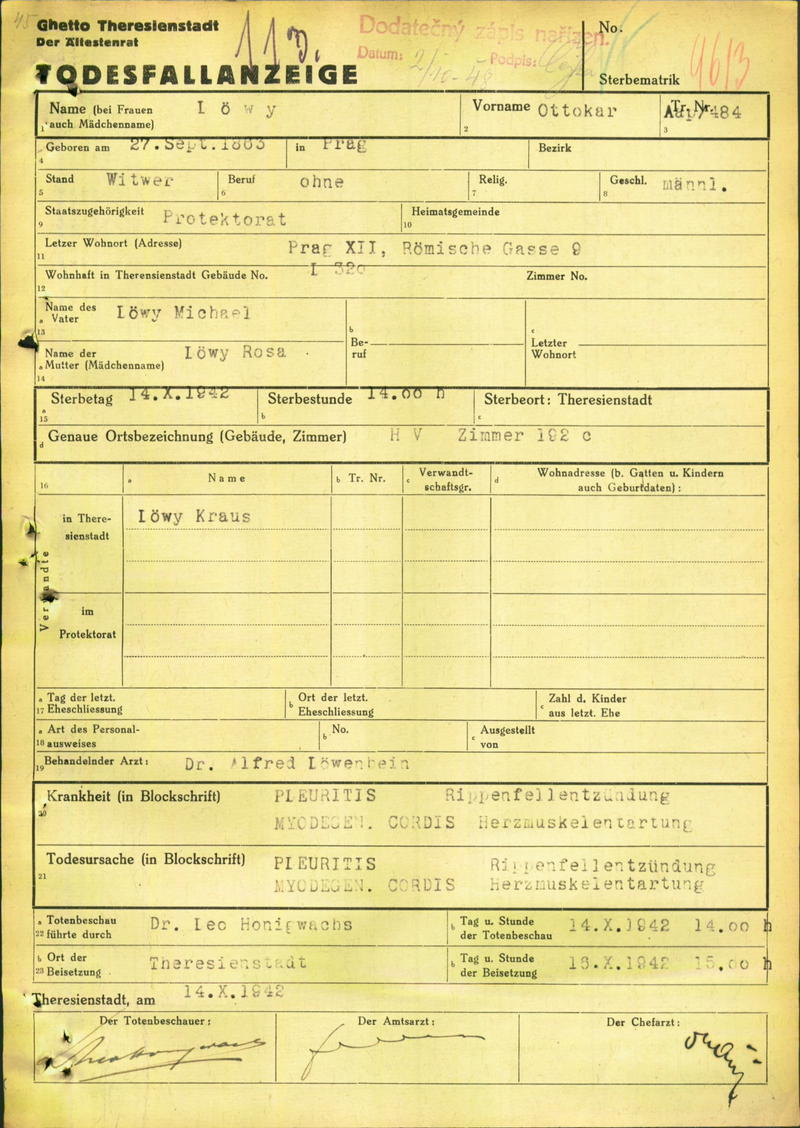 Ghetto Theresienstadt
Der Ältestenrat
TODESFALLANZEIGE
Dodatečný zápis nařízen.
Datum:
Podpis:
No.
Sterbematrik
Name (bei Frauen auch Mädchenname) Löwy
1
Vorname Ottokar
2
Tr. Nr. 484
3
Geboren am 27.Sept.1863 in Prag Bezirk
4
Stand Witwer Beruf ohne Relig. Geschl. männl.
5 6 7 8
Staatszugehörigkeit Protektorat Heimatsgemeinde
9 10
Letzer Wohnort (Adresse) Prag XII, Römische Gasse 9
11
Wohnhaft in Therensienstadt Gebäude No. L 320 Zimmer No.
12
Name des
a Vater Löwy Michael
13
b
Be-
ruf
c
Letzter
Wohnort
Name der Löwy Rosa
a Mutter (Mädchenname)
14
Sterbetag 14.X.1942 Sterbestunde 14.00 h Sterbeort: Theresienstadt
a 15 b c
d Genaue Ortsbezeichnung (Gebäude, Zimmer) H V Zimmer 192 c
16 a Name b Tr. Nr. c Verwandt-
schaftsgr. d Wohnadresse (b. Gatten u. Kindern
auch Geburtdaten):
Verwandte
in There-
sienstadt
Löwy Kraus
im
Protektorat
a Tag der letzt.
17 Eheschliessung
b Ort der letzt.
Eheschliessung
c Zahl d. Kinder
aus letzt. Ehe
a Art des Personal-
18 ausweises
b No.
c Ausgestellt
von
19 Behandelnder Arzt: Dr. Alfred Löwenbein
Krankheit (in Blockschrift) PLEURITIS Rippenfellentzündung
20 MYODEGEN. CORDIS Herzmuskelentartung
Todesursache (in Blockschrift) PLEURITIS Rippenfellentzündung
21 MYODEGEN. CORDIS Herzmuskelentartung
a Totenbeschau
22 führte durch Dr. Leo Honigwachs
b Tag u. Stunde
der Totenbeschau 14.X.1942 14.00 h
b Ort der
23 Beisetzung Theresienstadt
b Tag u. Stunde
der Beisetzung X.1942 15.00 h
Theresienstadt, am 14.X.1942
Der Totenbeschauer:
Der Amtsarzt:
Der Chefarzt: